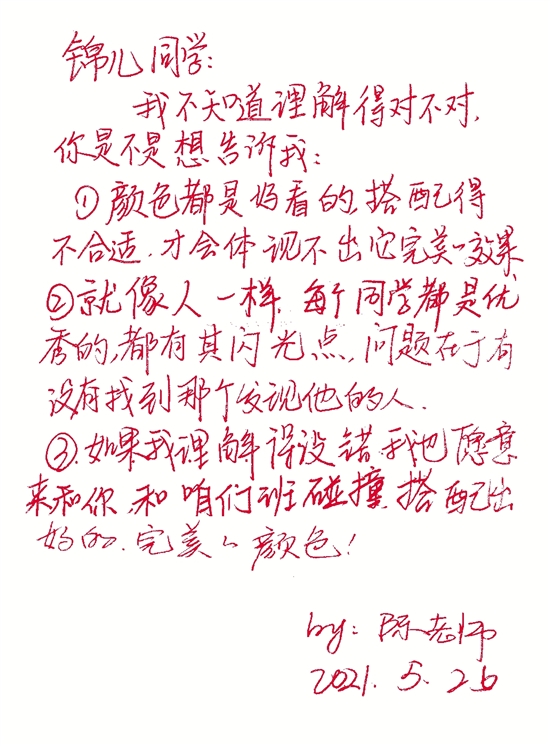 锦儿同学:
我不知道理解得对不对,
你是不是想告诉我:
①颜色都是好看的,搭配得
不合适,才会体现不出它完美的效果
②就像人一样,每个同学都是优
秀的,都有其闪光点,问题在于有
没有找到那个发现他的人.
③.如果我理解得没错,我也愿意
来和你,和咱们班碰撞,搭配出
好的.完美的颜色!
by: 陈老师
2021.5.26